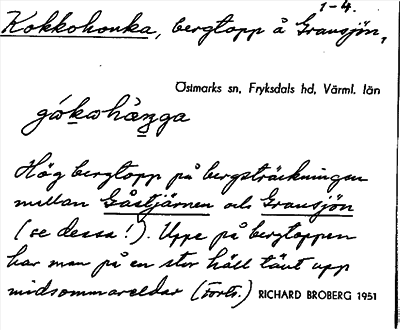 1-4.
Kokkohonka, bergtopp å Gransjön,
Östmarks sn, Fryksdals hd, Värml. län
gókωhàŋga
Hög bergtopp på bergsträckningen
mellan Gåstjärnen och Gransjön
(se dessa!). Uppe på bergtoppen
har man på en stor häll tänt upp
midsommareldar (Forts.) RICHARD BROBERG 1951